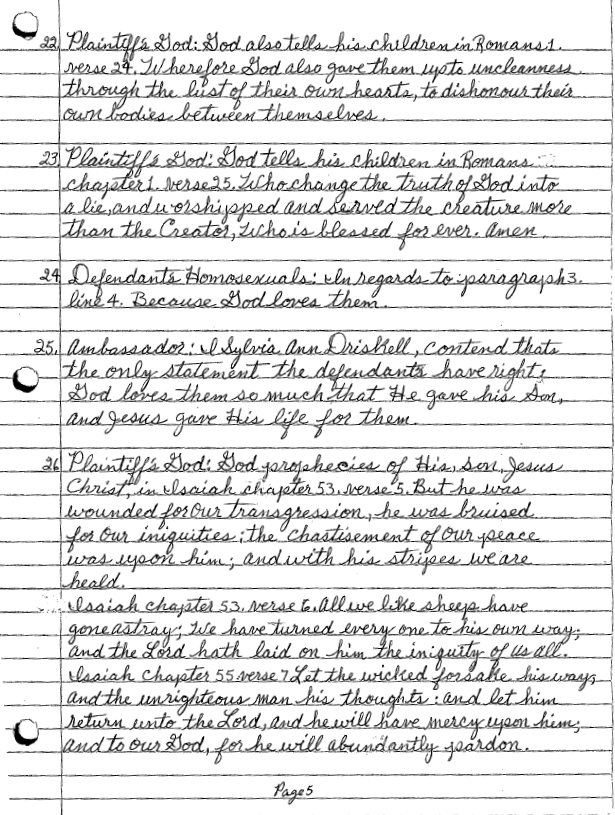 22 Plaintiff's God: God also tells his children in Romans 1.
verse 24. Wherefore God also gave them up to uncleanness
through the lust of their own hearts, to dishonour their
own bodies between themselves.
23 Plaintiff's God: God tells his children in Romans
chapter 1. verse 25. Who change the truth of God into
a lie, and worshipped and served the creature more
than the Creator, Who is blessed for ever. Amen
24 Defendants Homosexuals: In regards to paragraph 3.
line 4. Because God loves them.
25. Ambassador: I Sylvia Ann Driskell, contend thats
the only statement the defendants have right,
God loves them so much that He gave his Son,
and Jesus gave His life for them.
26 Plaintiff's God: God prophecies of His, son, Jesus
Christ, in Isaiah chapter 53. verse 5. But he was
wounded for our transgression, he was bruised
for our iniquities: the chastisement of our peace
was upon him; and with his stripes we are
heald.
Isaiah chapter 53. verse 6. All we like sheep have
gone astray; We have turned every one to his own way;
and the Lord hath laid on him the iniquity of us all.
Isaiah chapter 55 verse 7 Let the wicked forsake his way,
and the unrighteous man his thoughts: and let him
return unto the Lord, and he will have mercy upon him;
and to our God, for he will abundantly pardon.
Page 5